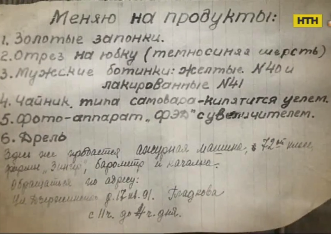 НТН
Меняю на продукты:
1. Золотые запонки.
2. Отрез на юбку (темносиняя шерсть)
3. Мужские ботинки: желтые N40 и
лакированные N41
4. Чайник, типа самовара-кипятится углем.
5. Фото-аппарат „ФЭД" с увеличителем.
6. Дрель
Здесь же продается ажурная машина, в 72
Зингер, барометр и качалка.
Обращаться по адресу:
Ул. Дзержинского д. 17 кв. 91.
с 11 ч. до 4 ч. дня.